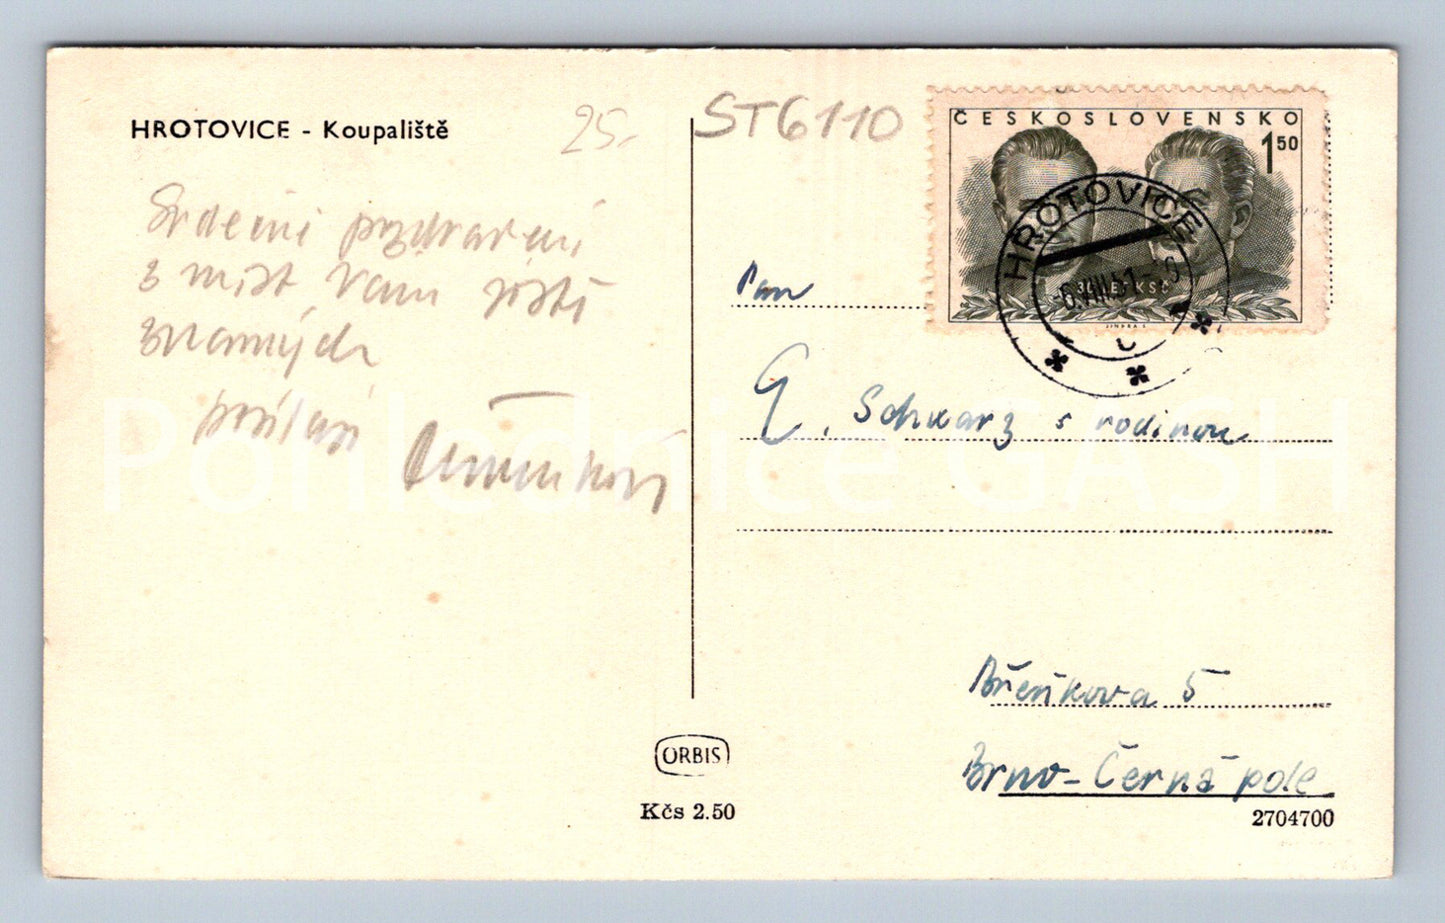 HROTOVICE - Koupaliště
25.-
ST6110
ČESKOSLOVENSKO
1 50
30 LET KSČ
HROTOVICE
-6.VIII.51-
Srdečné pozdravení
z míst Vám jistě
známých
posílají
Pan
E. Schwarz s rodinou
5
Brno-Černá pole
ORBIS
Kčs 2.50
2704700
Pohlednice GASH